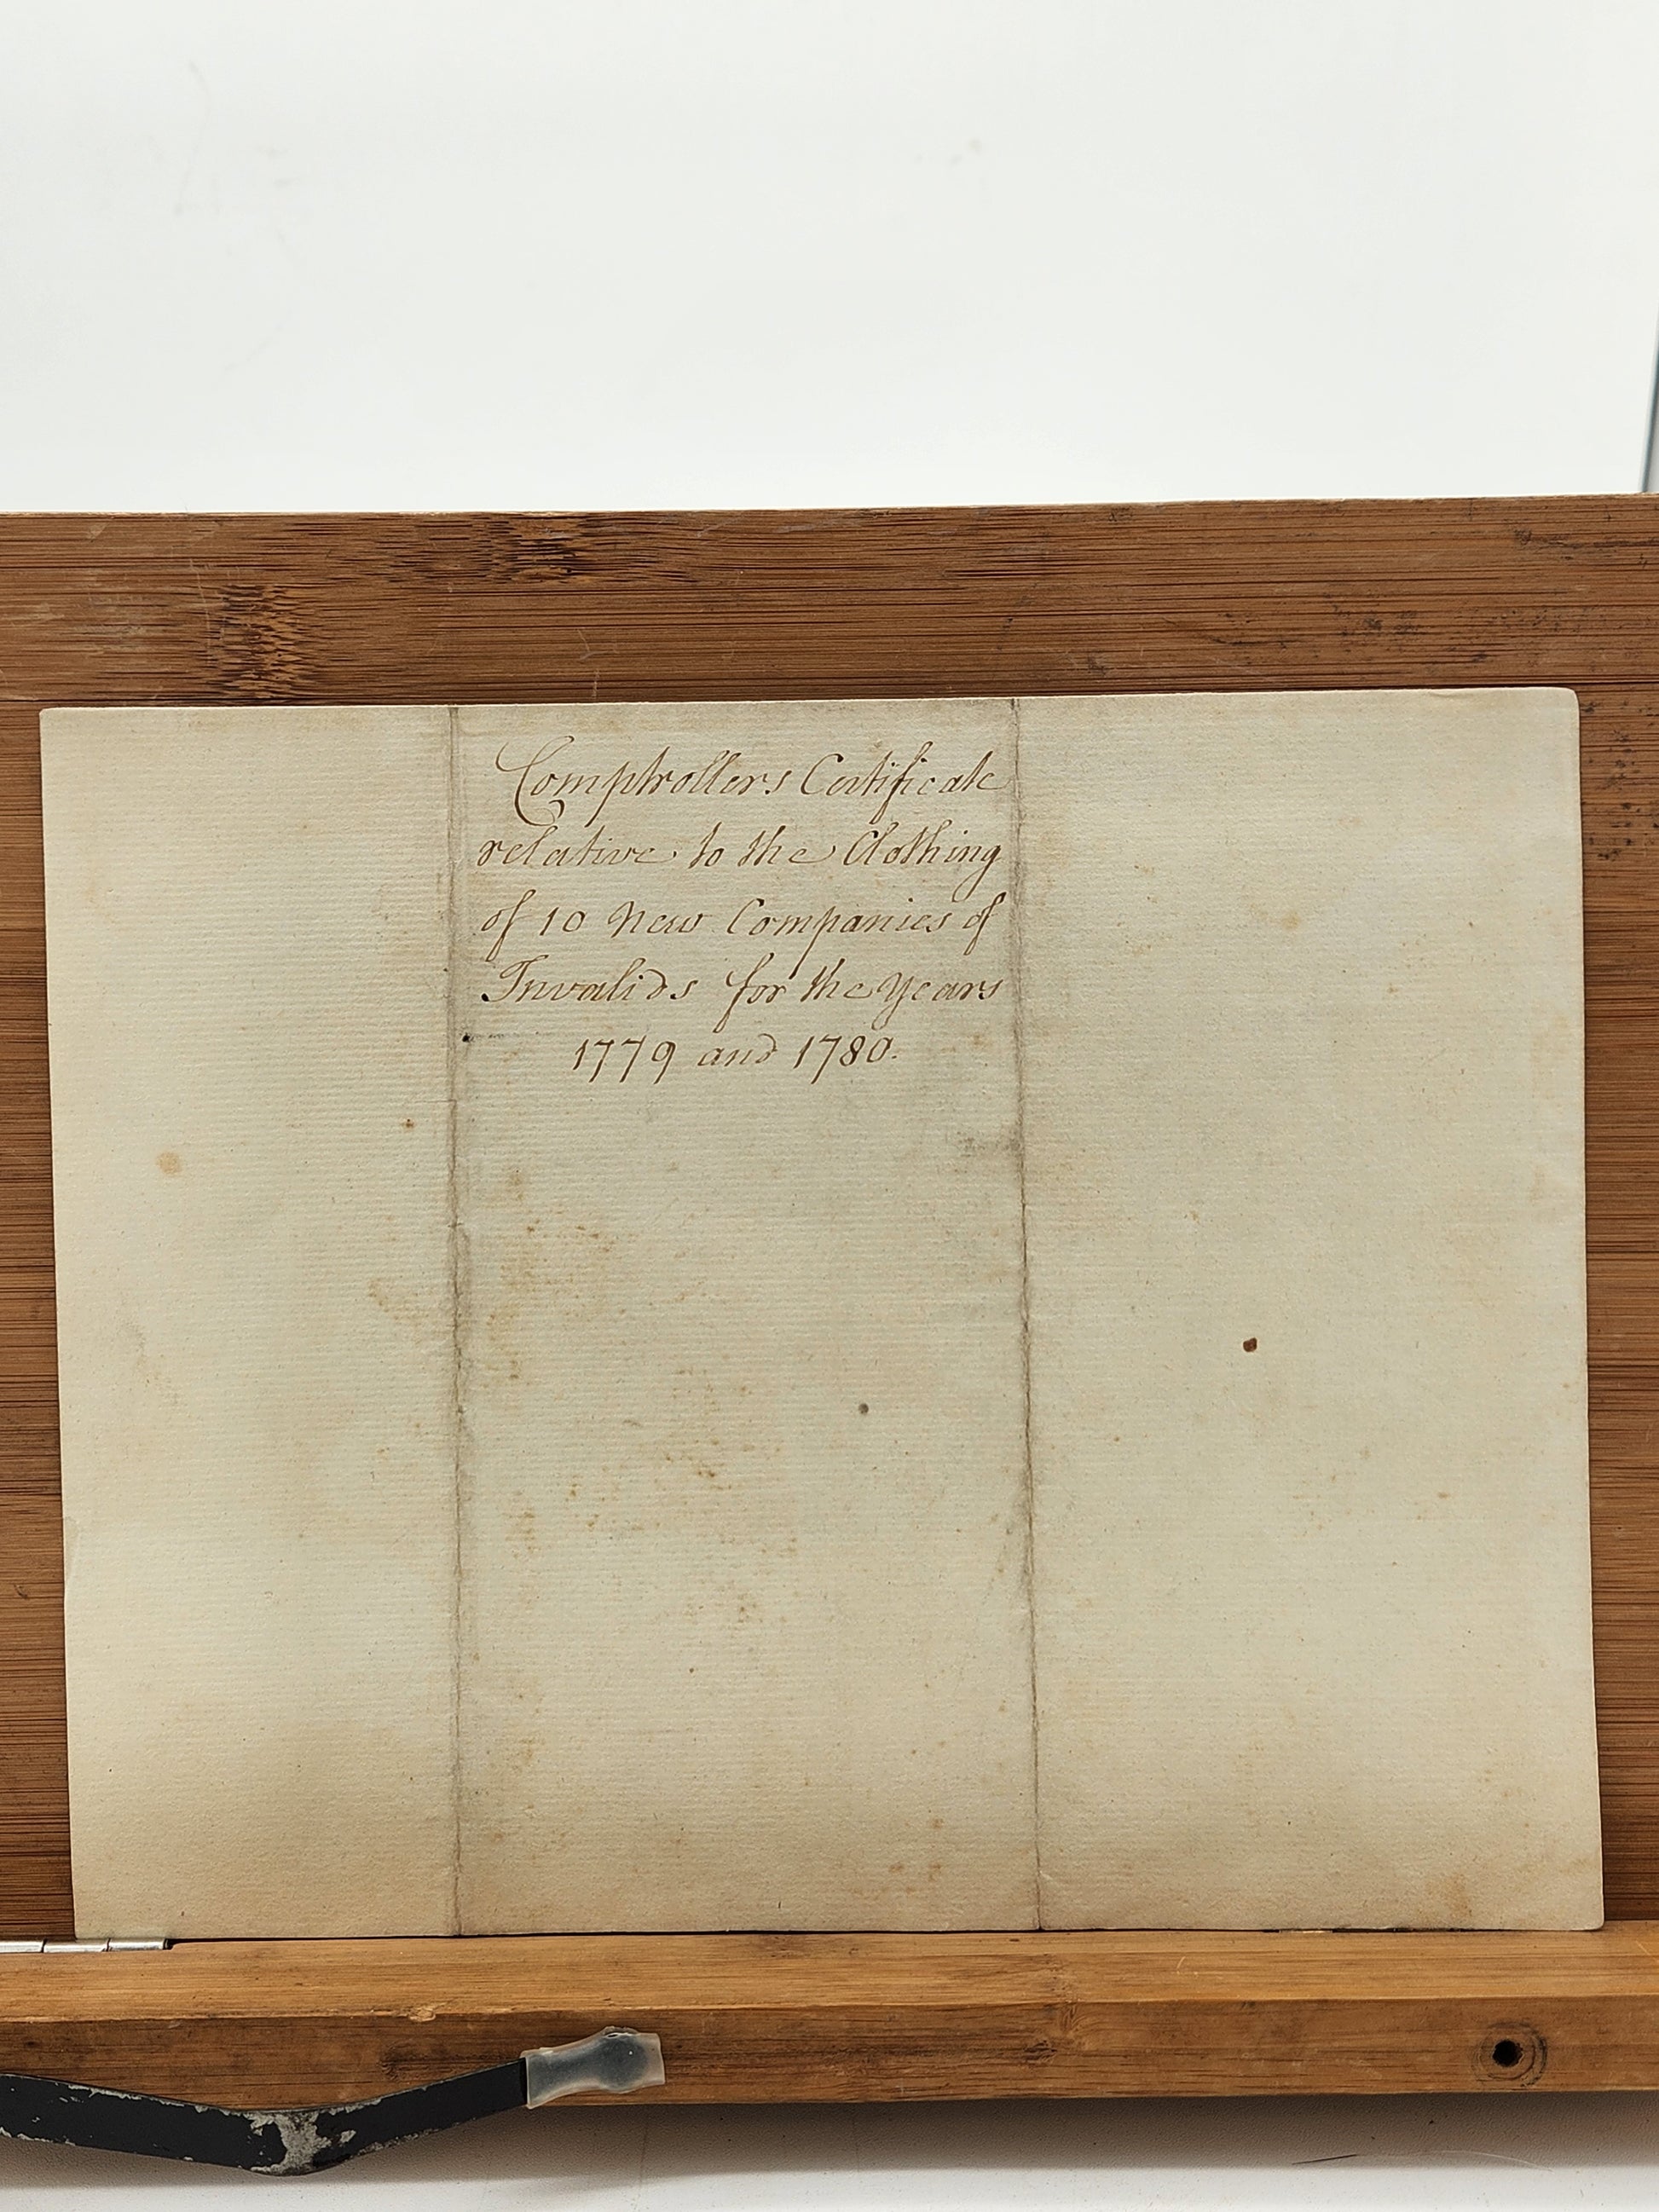 Comptrollers Certificate
relative to the Clothing
of 10 New Companies of
Invalids for the Years
1779 and 1780.